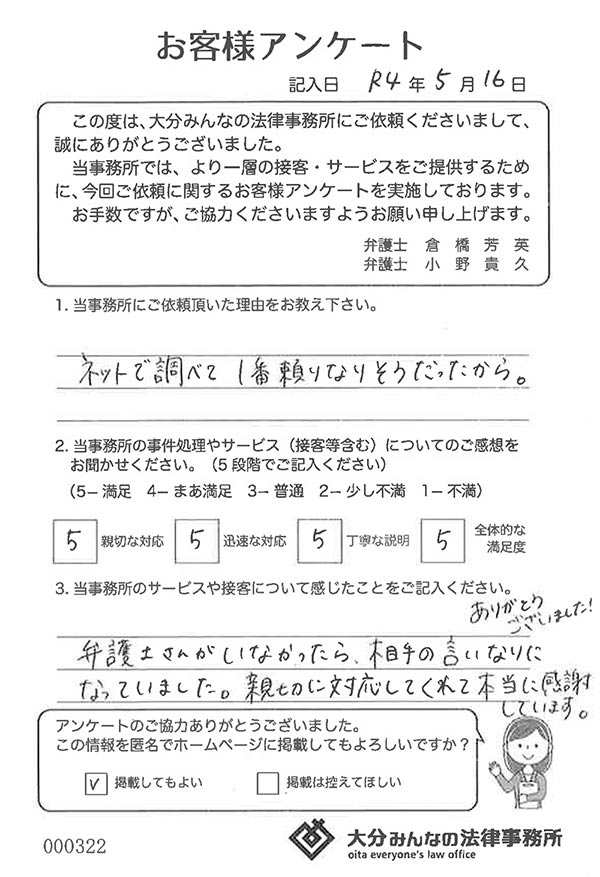 お客様アンケート
記入日 R4年5月16日
この度は、大分みんなの法律事務所にご依頼くださいまして、
誠にありがとうございました。
当事務所では、より一層の接客・サービスをご提供するため
に、今回ご依頼に関するお客様アンケートを実施しております。
お手数ですが、ご協力くださいますようお願い申し上げます。
弁護士 倉橋芳英
弁護士 小野貴久
1. 当事務所にご依頼頂いた理由をお教え下さい。
ネットで調べて1番頼りなりそうだったから。
2. 当事務所の事件処理やサービス（接客等含む）についてのご感想を
お聞かせください。（5段階でご記入ください）
（5－満足 4－まあ満足 3－普通 2－少し不満 1－不満）
5 親切な対応 5 迅速な対応 5 丁寧な説明 5 全体的な
満足度
3. 当事務所のサービスや接客について感じたことをご記入ください。
ありがとう
ございました！
弁護士さんがいなかったら、相手の言いなりに
なっていました。親切に対応してくれて本当に感謝
しています。
アンケートのご協力ありがとうございました。
この情報を匿名でホームページに掲載してもよろしいですか？
✓ 掲載してもよい 掲載は控えてほしい
000322
大分みんなの法律事務所
oita everyone's law office